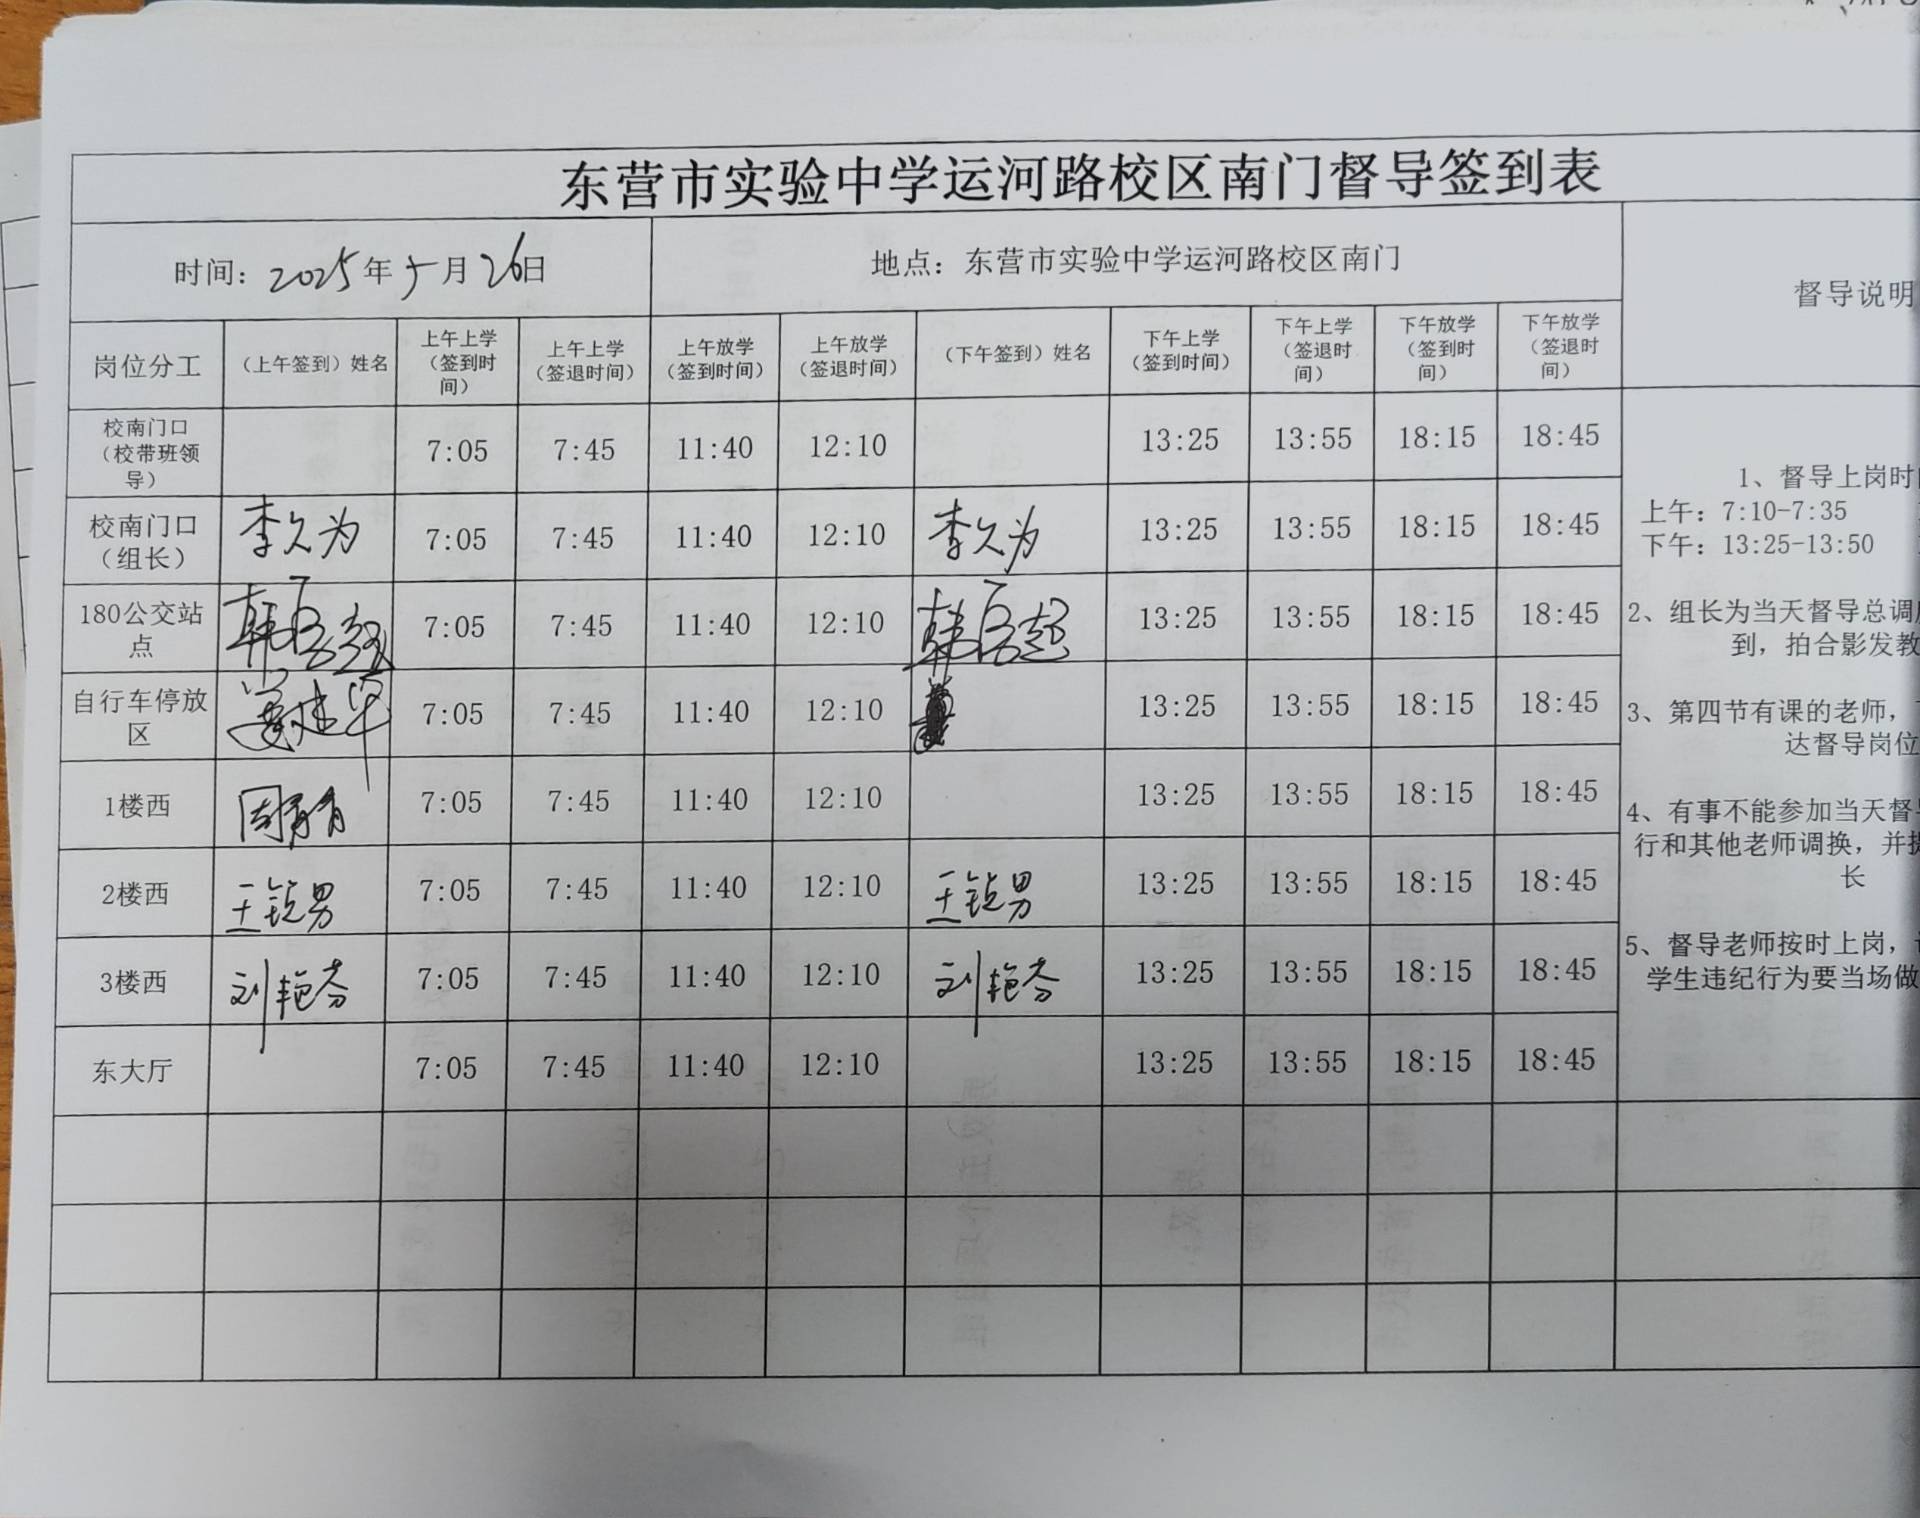 东营市实验中学运河路校区南门督导签到表
时间：2025年5月26日
地点：东营市实验中学运河路校区南门
督导说明
岗位分工
（上午签到）姓名
上午上学
（签到时
间）
上午上学
（签退时间）
上午放学
（签到时间）
上午放学
（签退时间）
（下午签到）姓名
下午上学
（签到时间）
下午上学
（签退时
间）
下午放学
（签到时
间）
下午放学
（签退时
间）
校南门口
（校带班领
导）
7:05 7:45 11:40 12:10 13:25 13:55 18:15 18:45
校南门口
（组长）
李久为 7:05 7:45 11:40 12:10 李久为 13:25 13:55 18:15 18:45
180公交站
点
7:05 7:45 11:40 12:10 13:25 13:55 18:15 18:45
自行车停放
区
7:05 7:45 11:40 12:10 13:25 13:55 18:15 18:45
1楼西 周青青 7:05 7:45 11:40 12:10 13:25 13:55 18:15 18:45
2楼西 7:05 7:45 11:40 12:10 13:25 13:55 18:15 18:45
3楼西 刘艳芬 7:05 7:45 11:40 12:10 刘艳芬 13:25 13:55 18:15 18:45
东大厅 7:05 7:45 11:40 12:10 13:25 13:55 18:15 18:45
1、督导上岗时
上午：7:10-7:35
下午：13:25-13:50
2、组长为当天督导总调
到，拍合影发教
3、第四节有课的老师，
达督导岗位
4、有事不能参加当天督
行和其他老师调换，并
长
5、督导老师按时上岗，
学生违纪行为要当场做